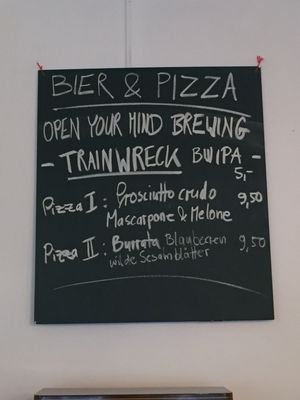 BIER & PIZZA
OPEN YOUR MIND BREWING
- TRAINWRECK BWIPA -
5,-
Pizza I : Prosciutto crudo 9,50
Mascarpone & Melone
Pizza II : Burrata Blaubeeren 9,50
wilde Sesamblätter